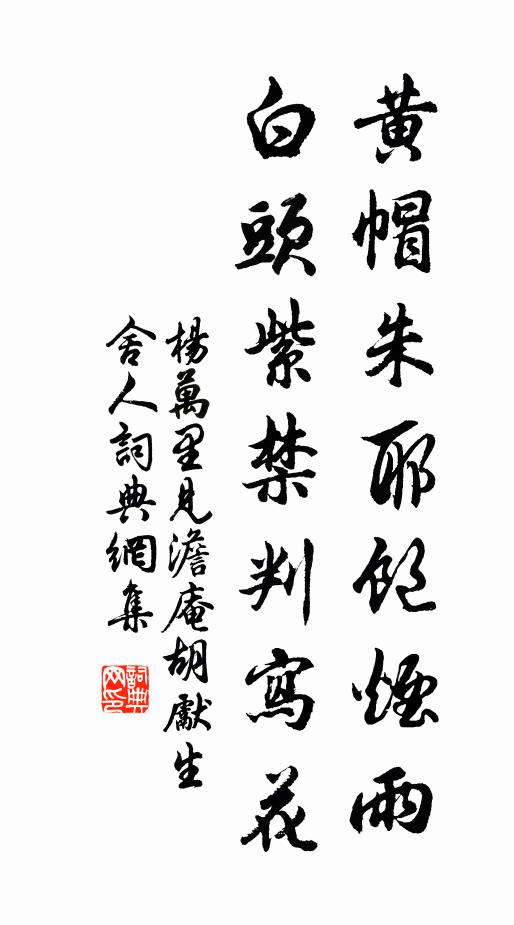 黃帽朱耶飽煙雨
白頭紫禁判寫花
楊萬里見澹庵胡獻生
舍人詞典網集
詞典網印